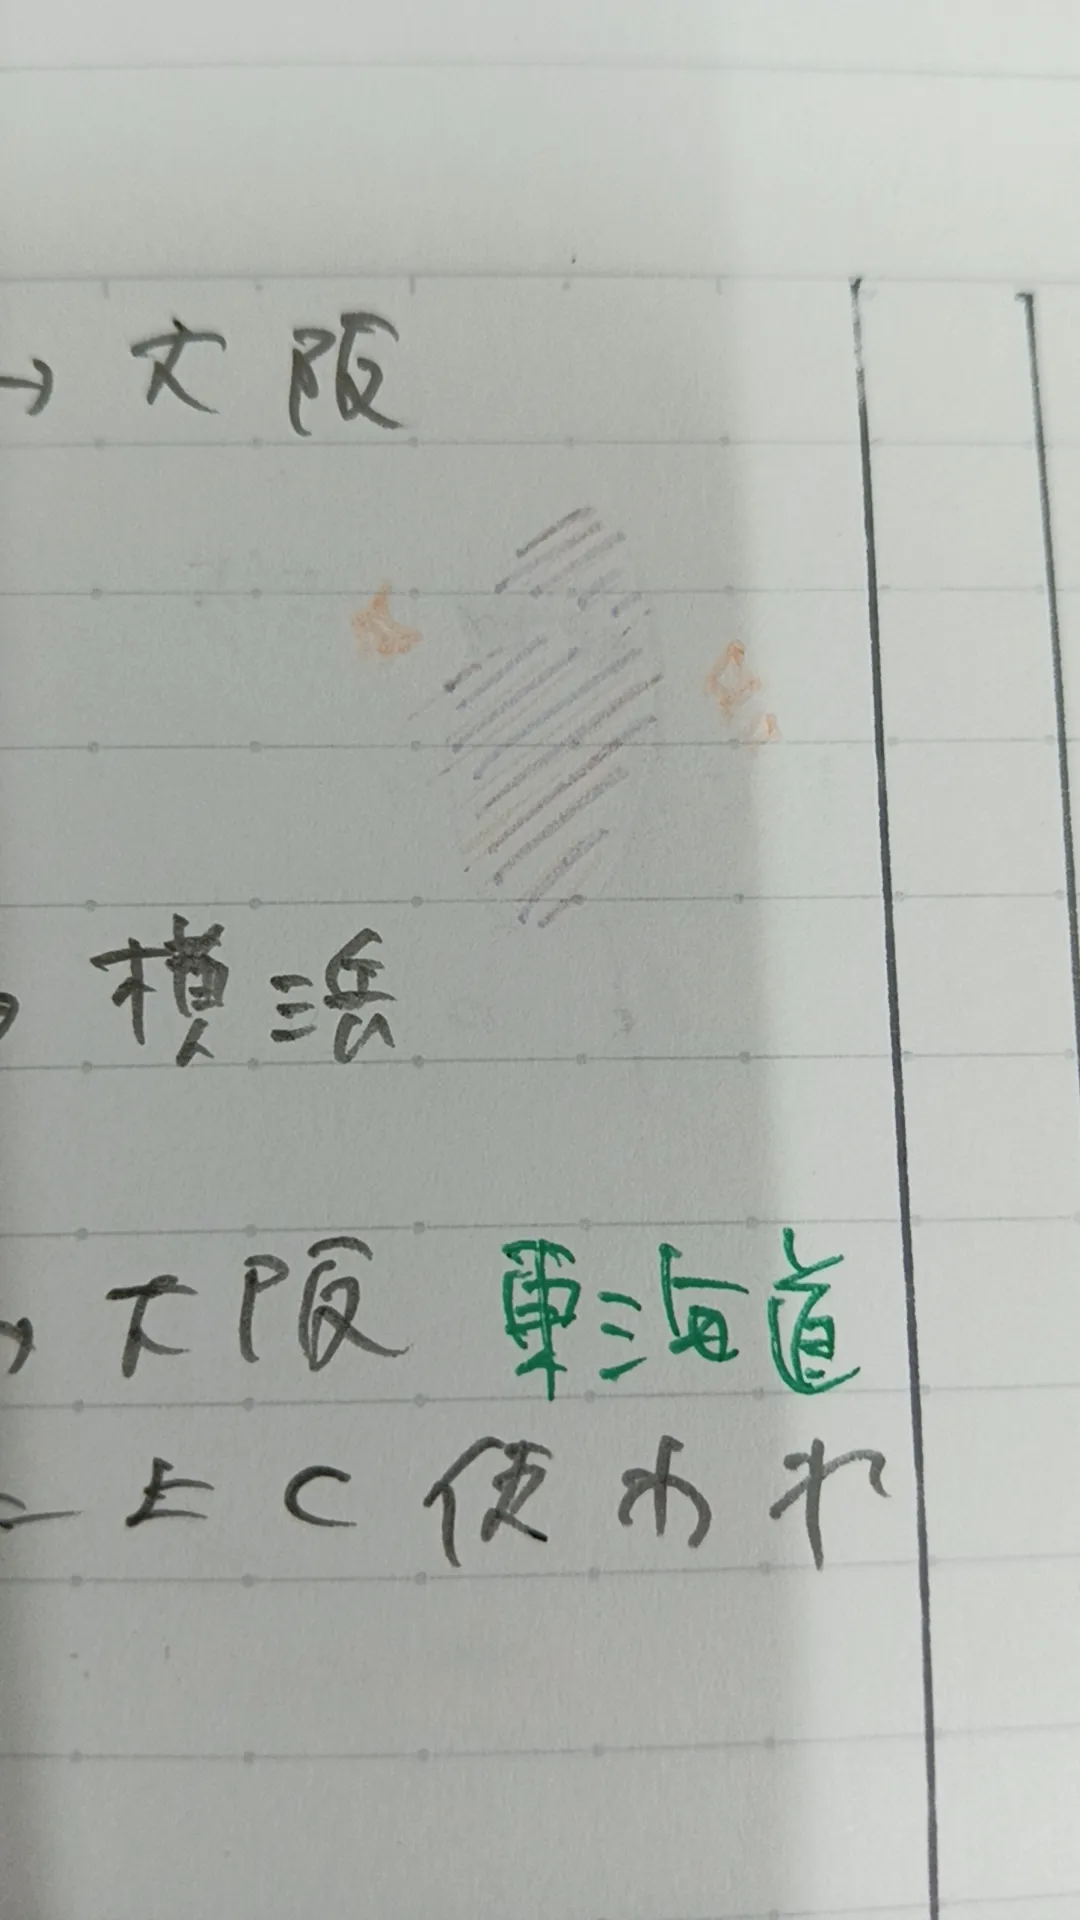 →大阪
横浜
大阪 東海道
よく使われ